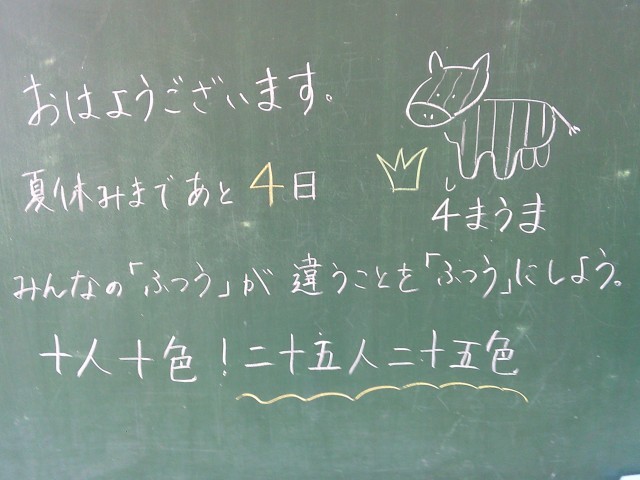 おはようございます。
夏休みまであと4日
し
4まうま
みんなの「ふつう」が違うことを「ふつう」にしよう。
十人十色！二十五人二十五色